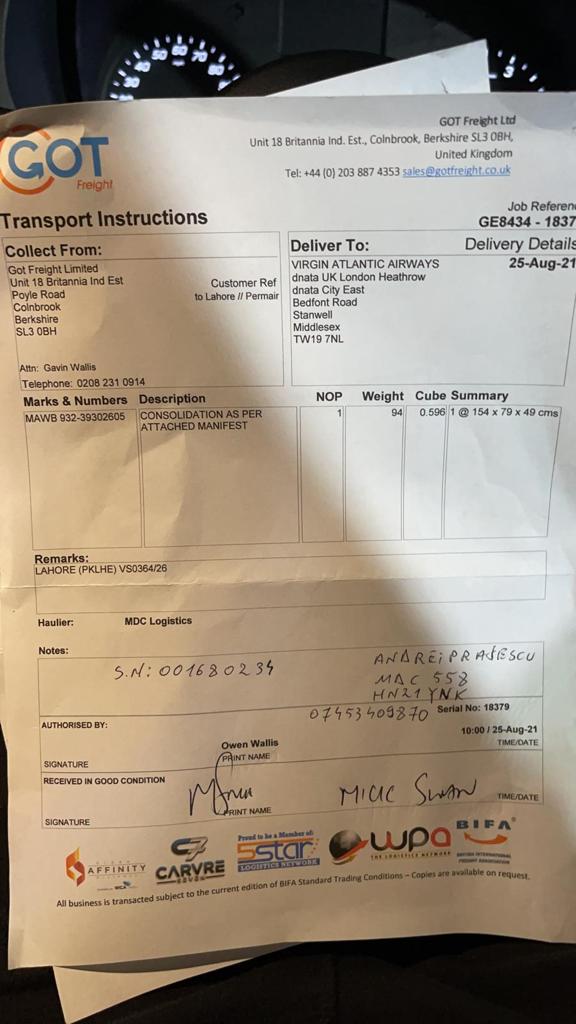 GOT
Freight
GOT Freight Ltd
Unit 18 Britannia Ind. Est., Colnbrook, Berkshire SL3 0BH,
United Kingdom
Tel: +44 (0) 203 887 4353 sales@gotfreight.co.uk
Transport Instructions
Job Referen
GE8434 - 1837
Collect From:
Got Freight Limited
Unit 18 Britannia Ind Est
Poyle Road
Colnbrook
Berkshire
SL3 0BH
Customer Ref
to Lahore // Permair
Attn: Gavin Wallis
Telephone: 0208 231 0914
Deliver To:
VIRGIN ATLANTIC AIRWAYS
dnata UK London Heathrow
dnata City East
Bedfont Road
Stanwell
Middlesex
TW19 7NL
Delivery Details
25-Aug-21
Marks & Numbers Description NOP Weight Cube Summary
MAWB 932-39302605 CONSOLIDATION AS PER 1 94 0.596 1 @ 154 x 79 x 49 cms
ATTACHED MANIFEST
Remarks:
LAHORE (PKLHE) VS0364/26
Haulier: MDC Logistics
Notes:
S.N: 001680234
ANDREI PRAJESCU
MAC 558
HN21 YNK
07453409870 Serial No: 18379
AUTHORISED BY:
10:00 / 25-Aug-21
Owen Wallis
SIGNATURE PRINT NAME TIME/DATE
RECEIVED IN GOOD CONDITION
MICK SWAN
SIGNATURE PRINT NAME TIME/DATE
AFFINITY
CARVRE
Proud to be a Member of:
5star
LOGISTICS NETWORK
wpa
THE LOGISTICS NETWORK
BIFA
BRITISH INTERNATIONAL
FREIGHT ASSOCIATION
All business is transacted subject to the current edition of BIFA Standard Trading Conditions – Copies are available on request.